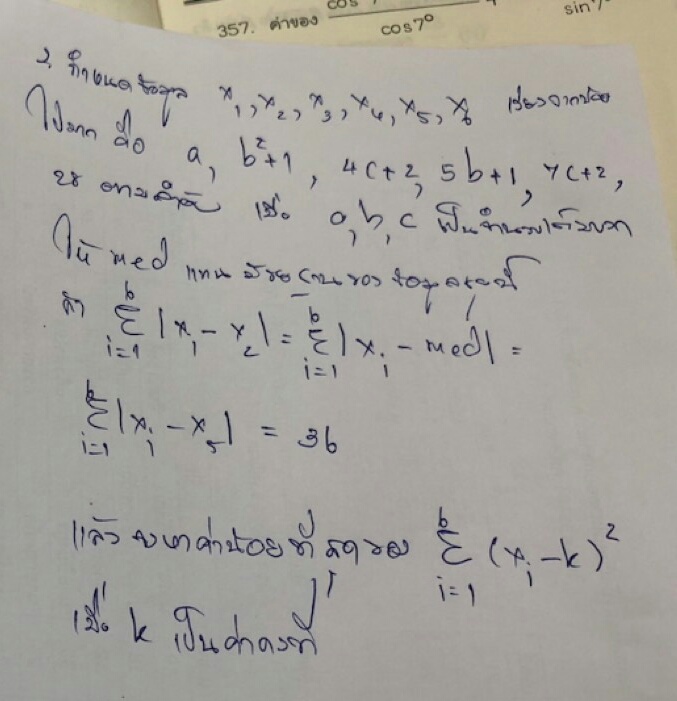 357. ค่าของ cos 7 / cos7° sin7°
2. กำหนดข้อมูล x₁, x₂, x₃, x₄, x₅, x₆ เรียงจากน้อย
ไปมาก คือ a, b²+1, 4c+2, 5b+1, 7c+2,
28 ตามลำดับ เมื่อ a, b, c เป็นจำนวนเต็มบวก
ให้ med แทน มัธยฐานของข้อมูลชุดนี้
ถ้า ∑_{i=1}^{6} |x_i - x_2| = ∑_{i=1}^{6} |x_i - med| =
∑_{i=1}^{6} |x_i - x_5| = 36
แล้ว จงหาค่าน้อยที่สุดของ ∑_{i=1}^{6} (x_i - k)²
เมื่อ k เป็นค่าคงที่